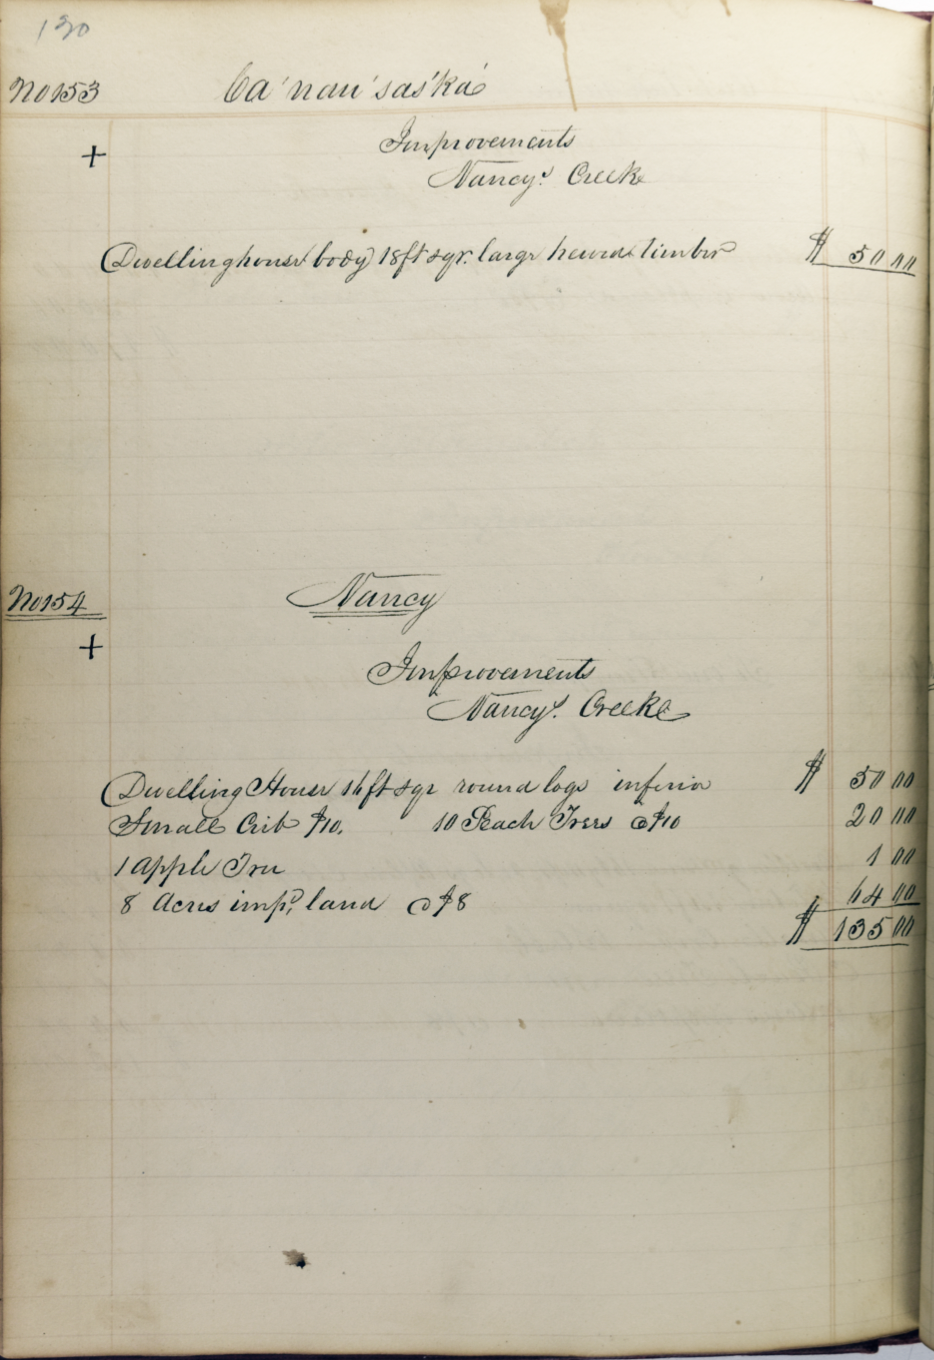 130
No 153 Ca'nau'sas'ka'
+ Improvements
Nancys. Creek
Dwelling house (body) 18 ft sqr. large hewed timber $ 50 00
No 154 Nancy
+ Improvements
Nancys. Creeke
Dwelling House 16 ft sqr round logs inferior $ 50 00
Small Crib $10. 10 Peach Trees @ $10 20 00
1 apple Tree 1 00
8 Acres impd. land @ $8 64 00
$ 135 00